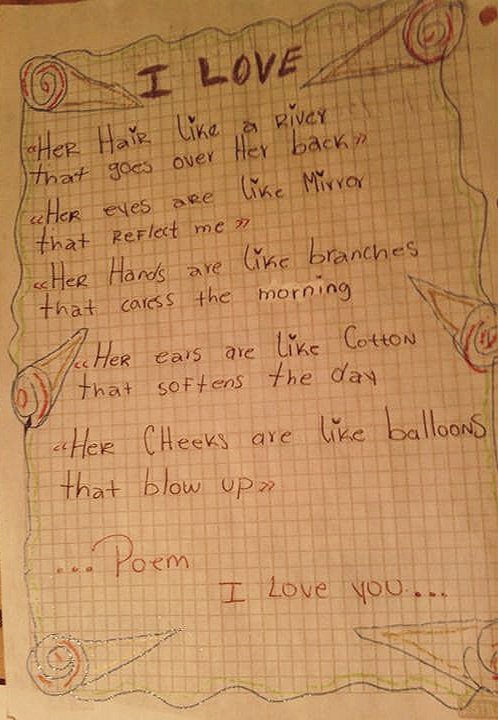 I LOVE
«HER HAiR like a RiveR
that goes over Her back»
«HER eyes are like Mirror
that REFLect me»
«HER Hands are like branches
that caress the morning
«HER ears are like COTTON
that soFtens the day
«HER CHeeks are like balloons
that blow up»
...Poem
I Love you...